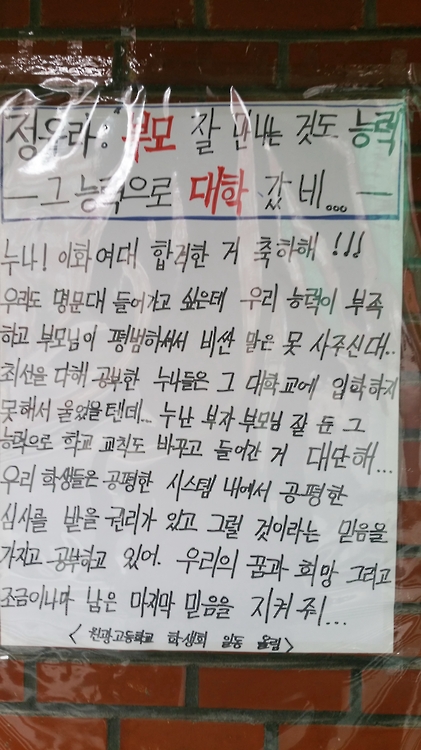 정유라: 부모 잘 만나는 것도 능력
— 그 능력으로 대학 갔네... —
누나! 이화여대 합격한 거 축하해 !!!
우리도 명문대 들어가고 싶은데 우리 능력이 부족
하고 부모님이 평범하셔서 비싼 말은 못 사주신대..
최선을 다해 공부한 누나들은 그 대학교에 입학하지
못해서 울었을텐데... 누난 부자 부모님 잘 둔 그
능력으로 학교 교칙도 바꾸고 들어간 거 대단해...
우리 학생들은 공평한 시스템 내에서 공평한
심사를 받을 권리가 있고 그럴 것이라는 믿음을
가지고 공부하고 있어. 우리의 꿈과 희망 그리고
조금이나마 남은 마지막 믿음을 지켜줘!...
< 원광고등학교 학생회 일동 올림 >